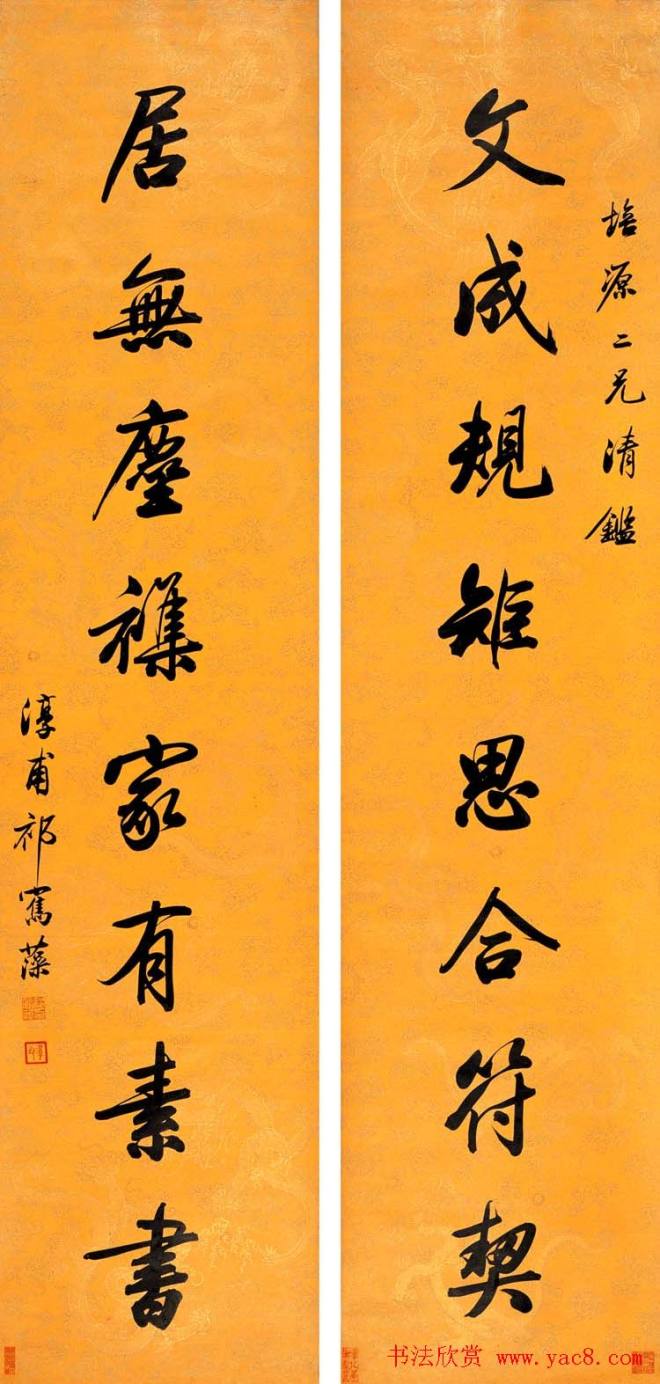 培源二兄清鑑
文成規矩思合符契
居無塵襍家有素書
淳甫祁寯藻
书法欣赏 www.yac8.com